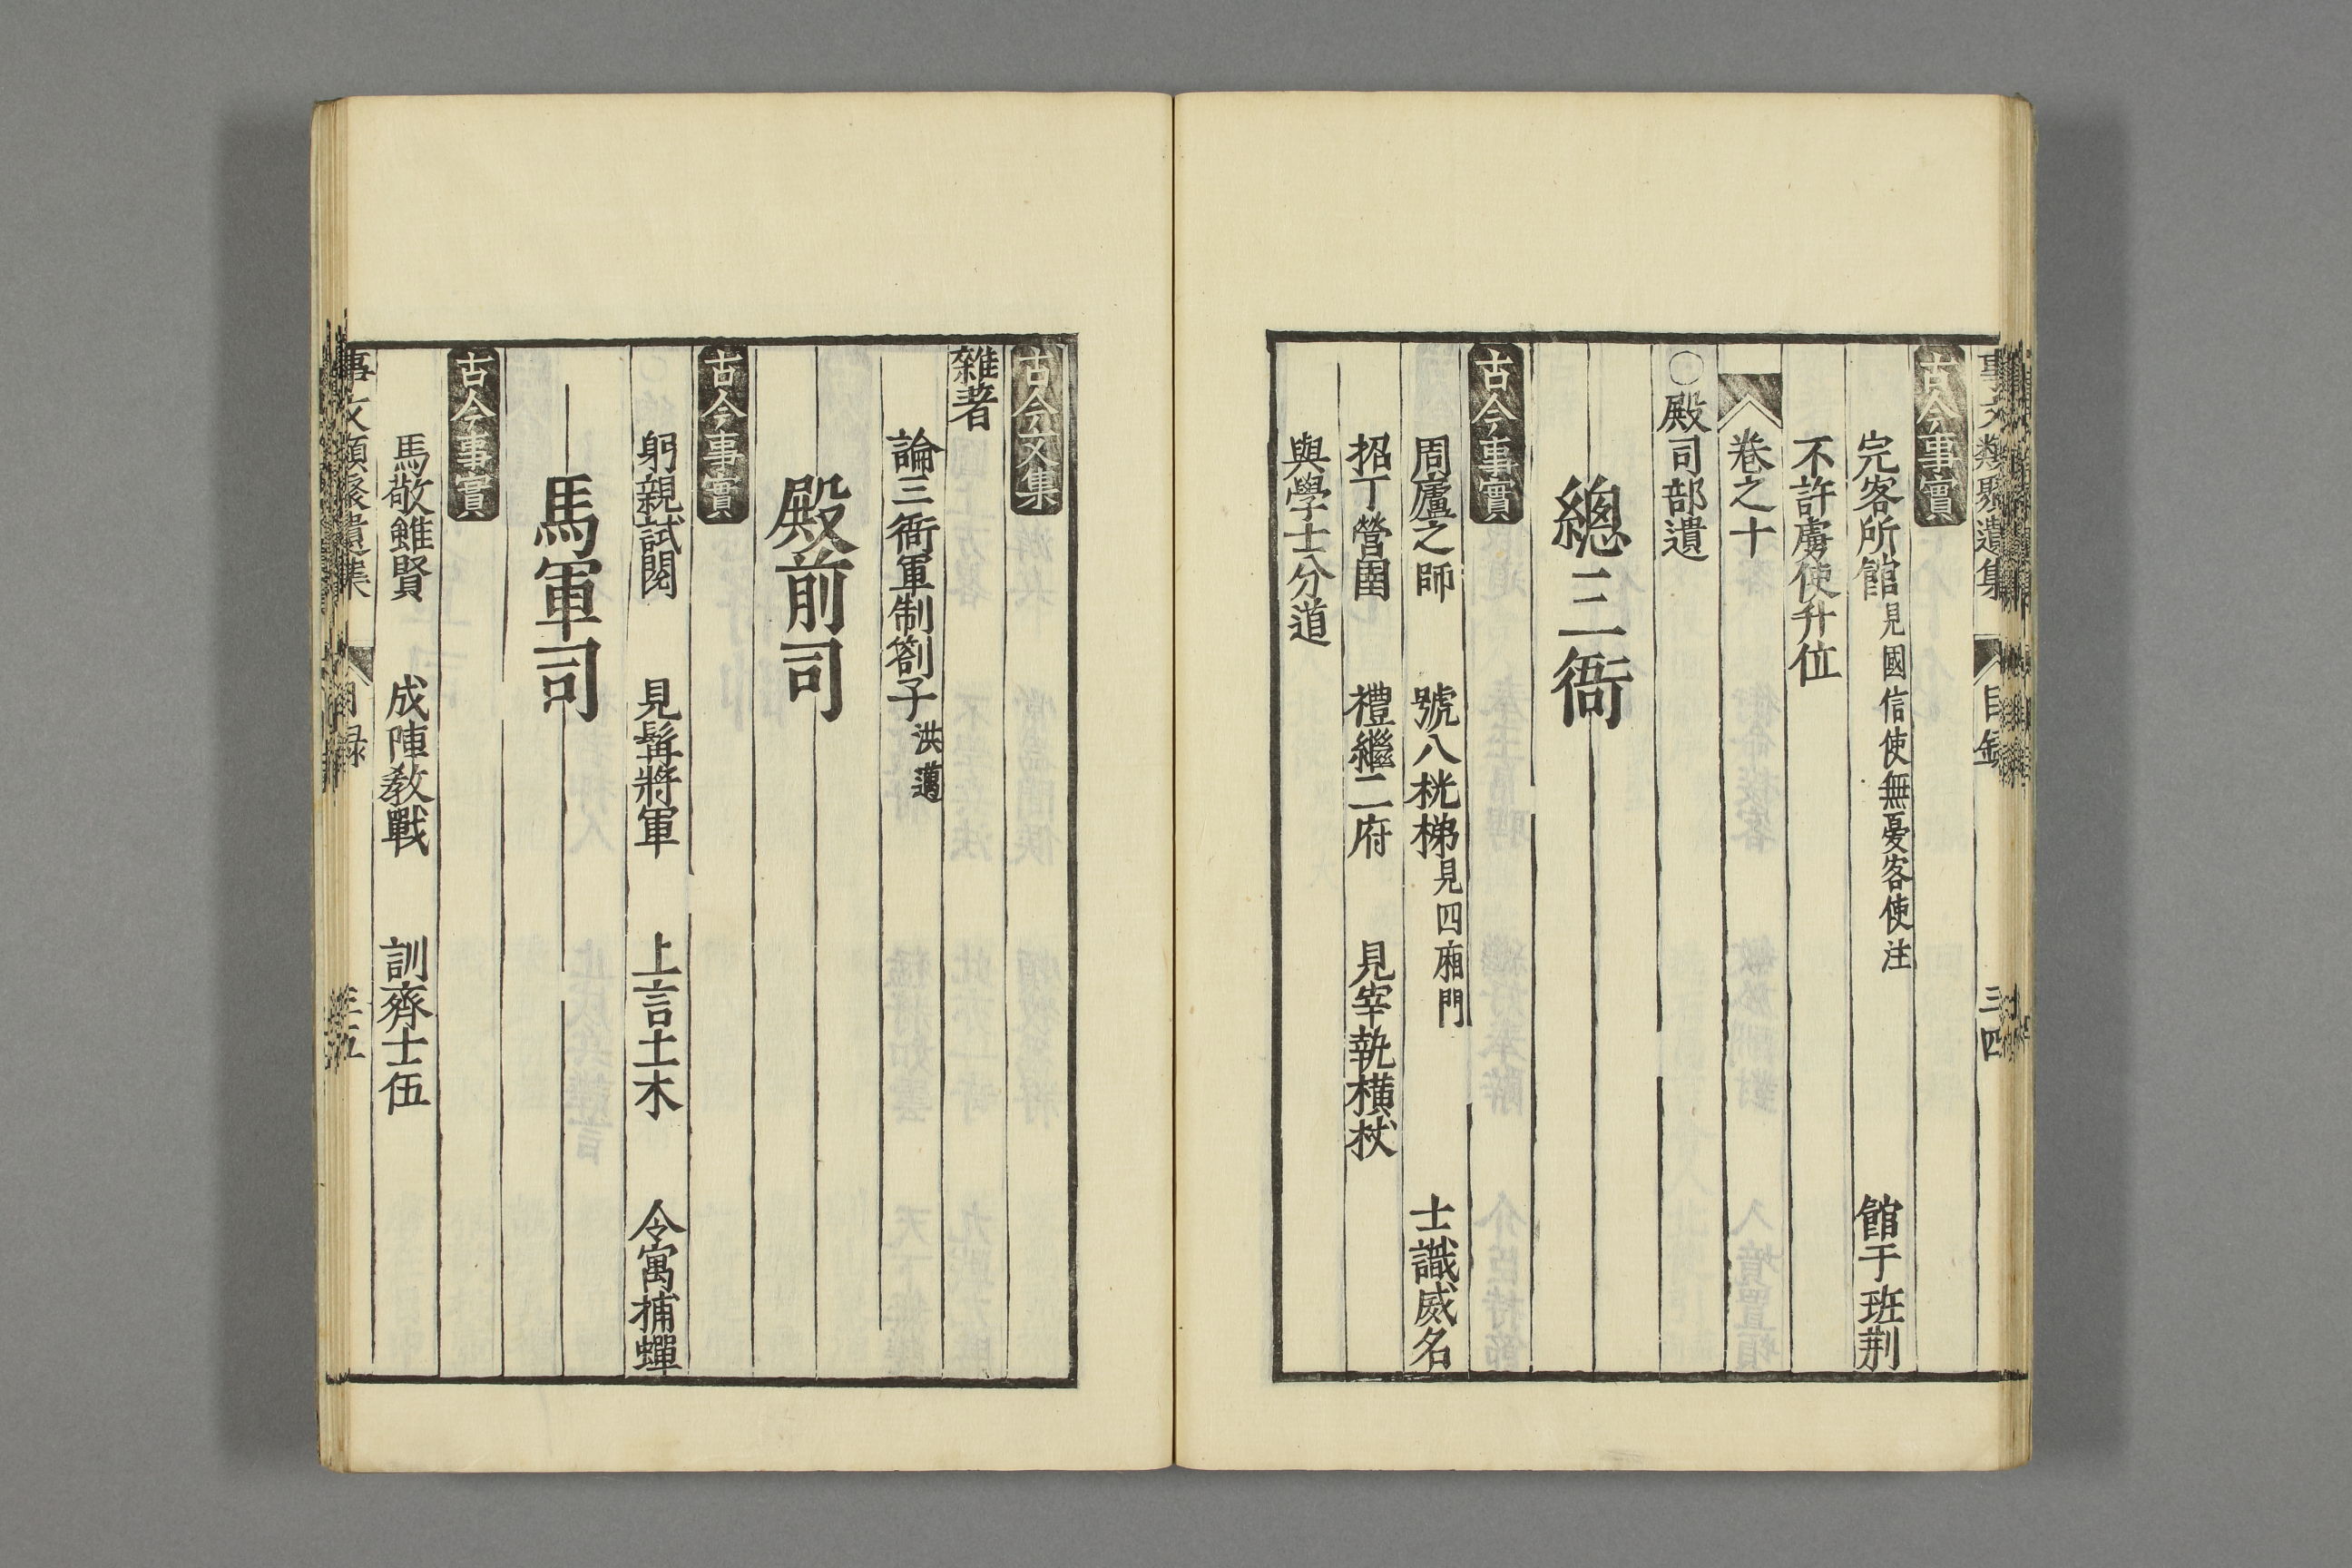 事文類聚遺集　目録　三四
古今事實
完客所館見國信使無憂客使注　館于班荆
不許虜使升位
卷之十
○殿司部遺
總三衙
古今事實
周廬之師　號八㭇梯見四廂門　士識威名
招丁營圉　禮繼二府　見宰執横杖
與學士分道
古今文集
雜著
論三衙軍制劄子洪邁
殿前司
古今事實
躬親試閱　見髯將軍　上言土木　令寓捕蟬
馬軍司
古今事實
馬敬雖賢　成陣教戰　訓齊士伍
事文類聚遺集　目録　三五